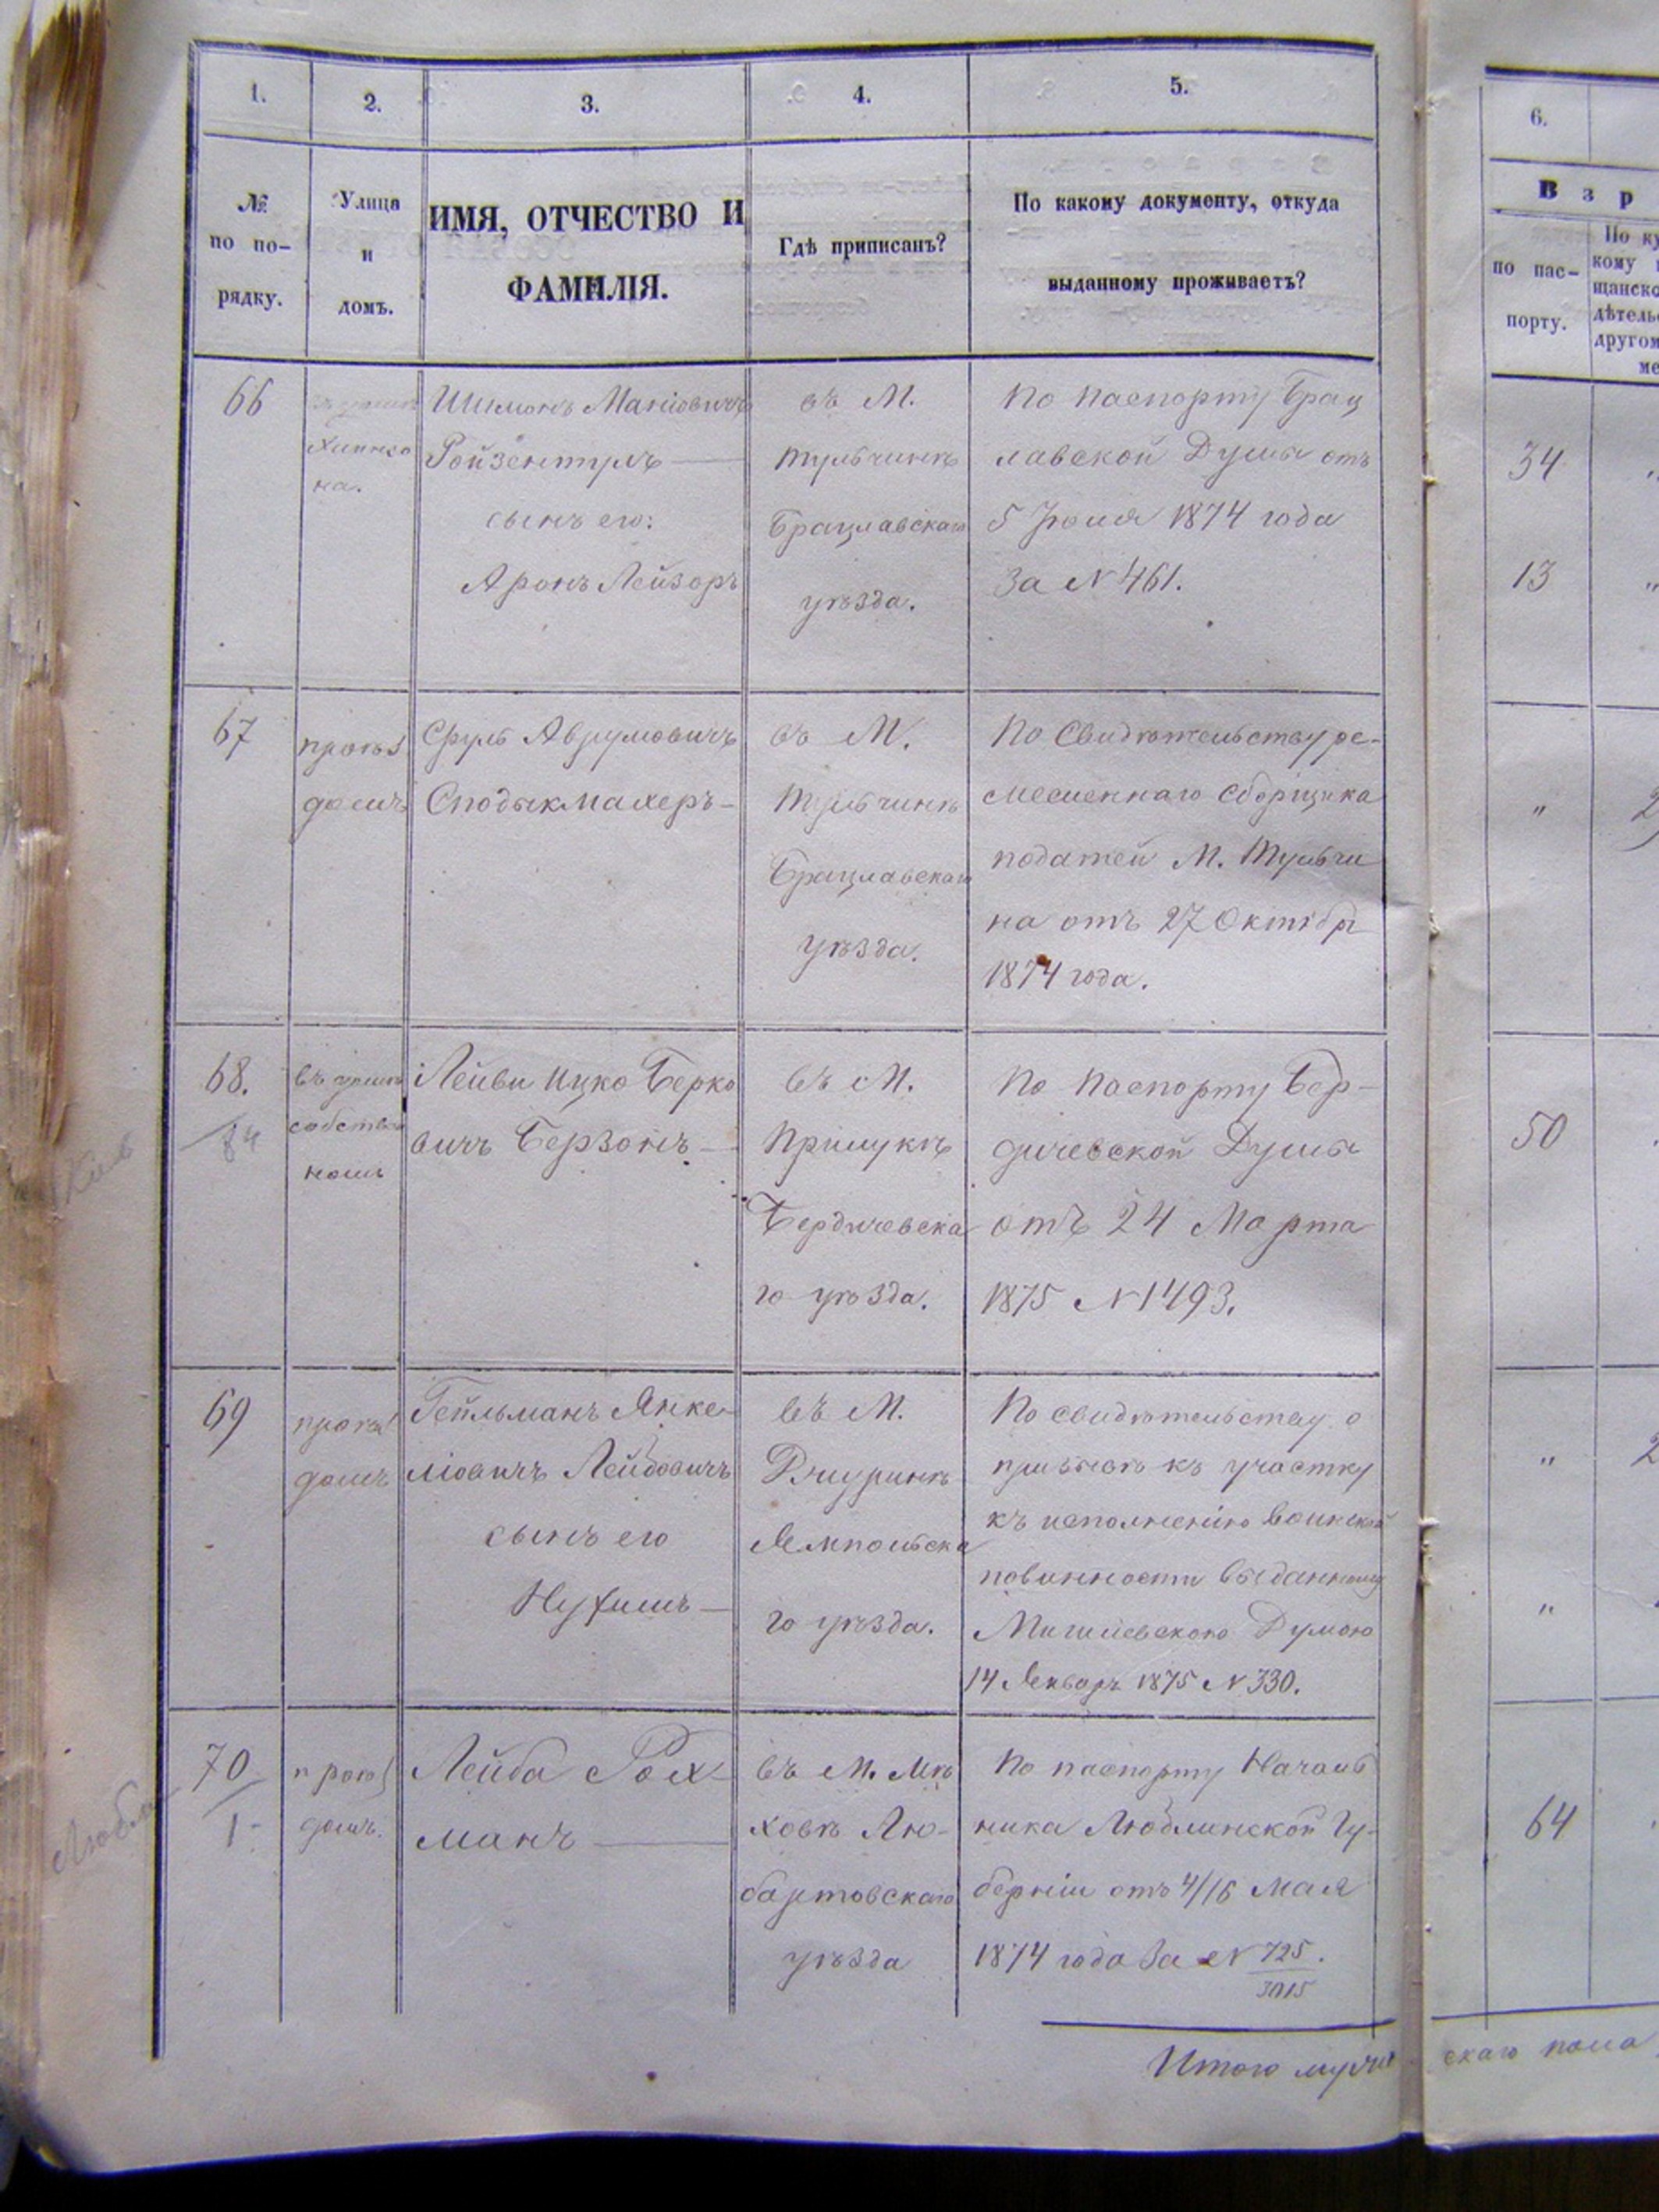 1.
2.
3.
4.
5.
6.
№
по по-
рядку.
Улица
и
домъ.
ИМЯ, ОТЧЕСТВО И
ФАМИЛІЯ.
Гдѣ приписанъ?
По какому документу, откуда
выданному проживаетъ?
В з р
по пас-
порту.
По ку
кому
щанско
дѣтель
другом
ме
66
на.
Шимонъ Манiовичъ
Ройзентулъ —
сынъ его:
Аронъ Лейзоръ
въ М.
Тульчинѣ
Брацлавскаго
уѣзда.
По паспорту Брац
лавской Думы отъ
5 Iюня 1874 года
за N 461.
34
13
67
домъ
Сруль Аврумовичъ
Сподыкмахеръ —
въ М.
Тульчинѣ
Брацлавскаго
уѣзда.
По Свидѣтельству ре-
месленнаго сборщика
податей М. Тульчи
на отъ 27 Октября
1874 года.
"
2
68.
84
въ домѣ
собствен
номъ
Лейви Ицко Берко
вичъ Берзонъ —
въ М.
Прилукѣ
Бердичевска
го уѣзда.
По паспорту Бер-
дичевской Думы
отъ 24 Марта
1875 N 1493.
50
69
домъ
Гейльманъ Янке
лiовичъ Лейбовичъ
сынъ его
Нухимъ —
въ М.
Ямпольска
го уѣзда.
По свидѣтельству о
къ участку
къ исполненiю воинской
повинности выданному
Думою
14 Январъ 1875 N 330.
"
2
"
70
1
домъ.
Любл
Лейба Рох-
манъ —
въ М. Мѣ
ховѣ Лю-
бартовскаго
уѣзда
По паспорту Началь
ника Люблинской Гу-
бернiи отъ 4/16 Мая
1874 года за N 725/3015.
64
Итого мужч
скаго пола